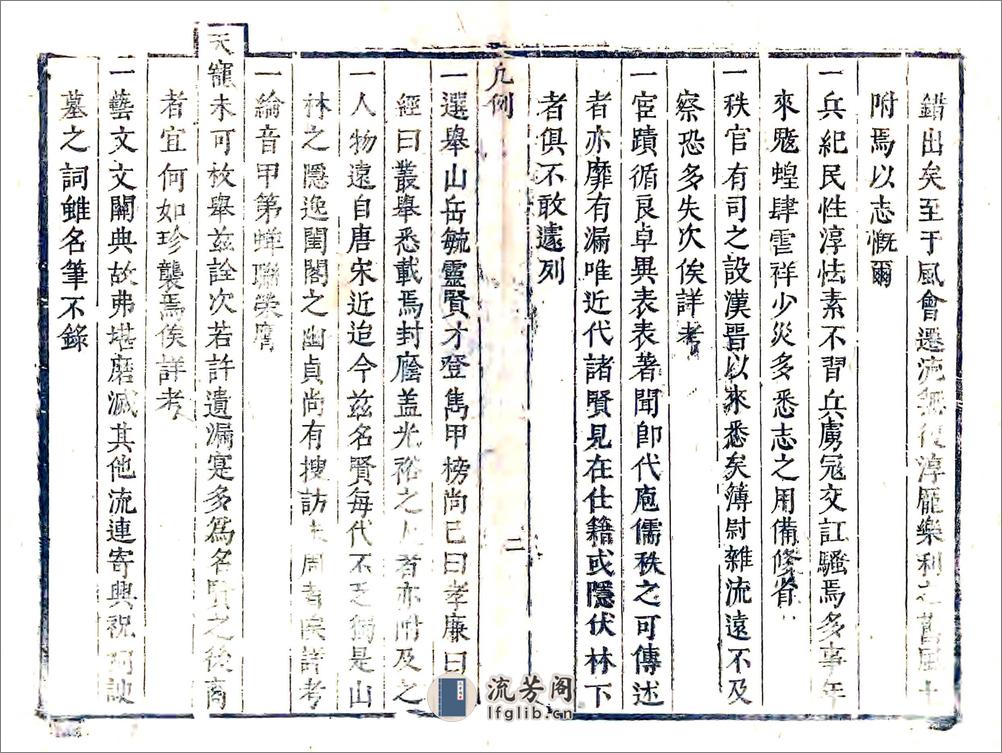 錯出矣至于風會遷流無復淳龐樂利之舊風十
附焉以志慨爾
一兵紀民性淳怯素不習兵虜寇交訌騷焉多事年
來魃蝗肆雹祥少災多悉志之用備修省
一秩官有司之設漢晉以來悉矣簿尉雜流遠不及
察恐多失次俟詳考
一宦蹟循良卓異表表著聞卽代庖儒秩之可傳述
者亦靡有漏唯近代諸賢見在仕籍或隱伏林下
者俱不敢遽列
凡例
二
一選舉山岳毓靈賢才登雋甲榜尚巳曰孝廉曰
經曰叢舉悉載焉封廕盖光裕之人者亦附及之
一人物遠自唐宋近迨今茲名賢每代不乏獨是山
林之隱逸閨閣之幽貞尚有搜訪未周者俟詳考
一綸音甲第蟬聯榮膺
天寵未可枚舉茲詮次若許遺漏寔多爲名賢之後裔
者宜何如珍襲焉俟詳考
一藝文文關典故弗堪磨滅其他流連寄興祝 諛
墓之詞雖名筆不錄
流芳阁
lfglib.cn